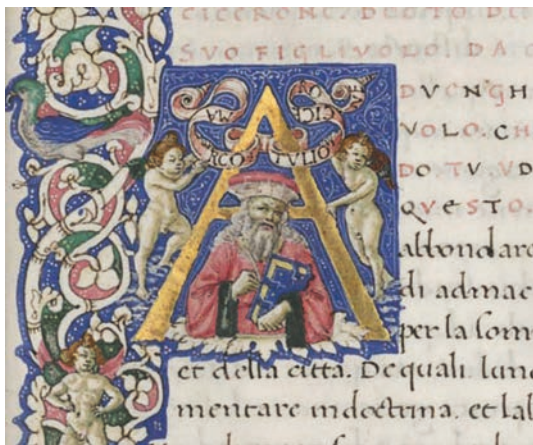 SVO FIGLIVOLO. DA C
MA RCO TVLIO CICE
VOLO. CH
DO TV VD
QVESTO.
A
abbondare
di admac
per la som
et della citta. De quali. luno
mentare in doctrina. et lal